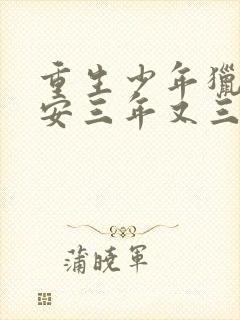 重生少年獵
安三年又三
蒲曉軍